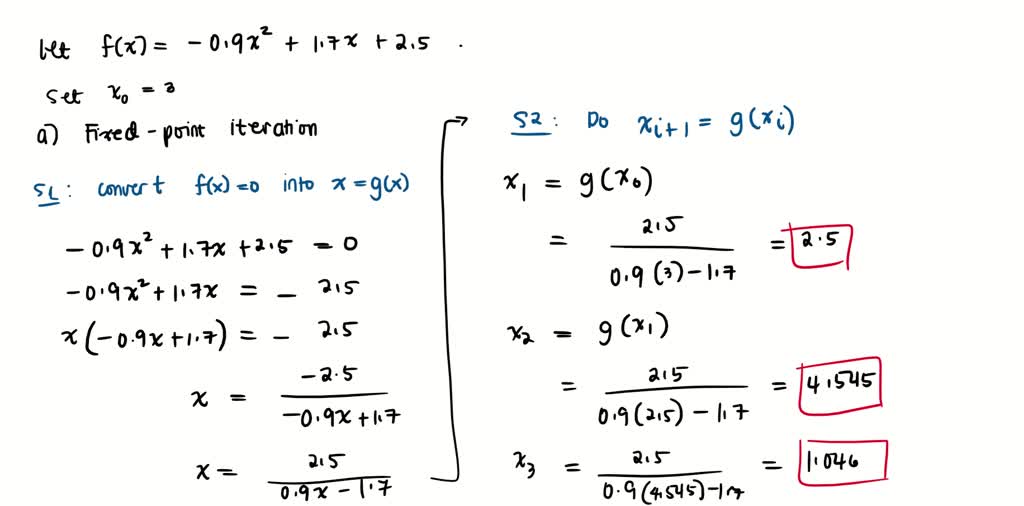 let f(x) = -0.9x² + 1.7x + 2.5 .
set x₀ = 3
a) Fixed-point iteration
S1: convert f(x)=0 into x=g(x)
-0.9x² + 1.7x + 2.5 = 0
-0.9x² + 1.7x = - 2.5
x(-0.9x + 1.7) = - 2.5
x = -2.5 / -0.9x + 1.7
x = 2.5 / 0.9x - 1.7
S2: Do xᵢ₊₁ = g(xᵢ)
x₁ = g(x₀)
= 2.5 / 0.9(3) - 1.7 = 2.5
x₂ = g(x₁)
= 2.5 / 0.9(2.5) - 1.7 = 4.545
x₃ = 2.5 / 0.9(4.545) - 1.7 = 1.046